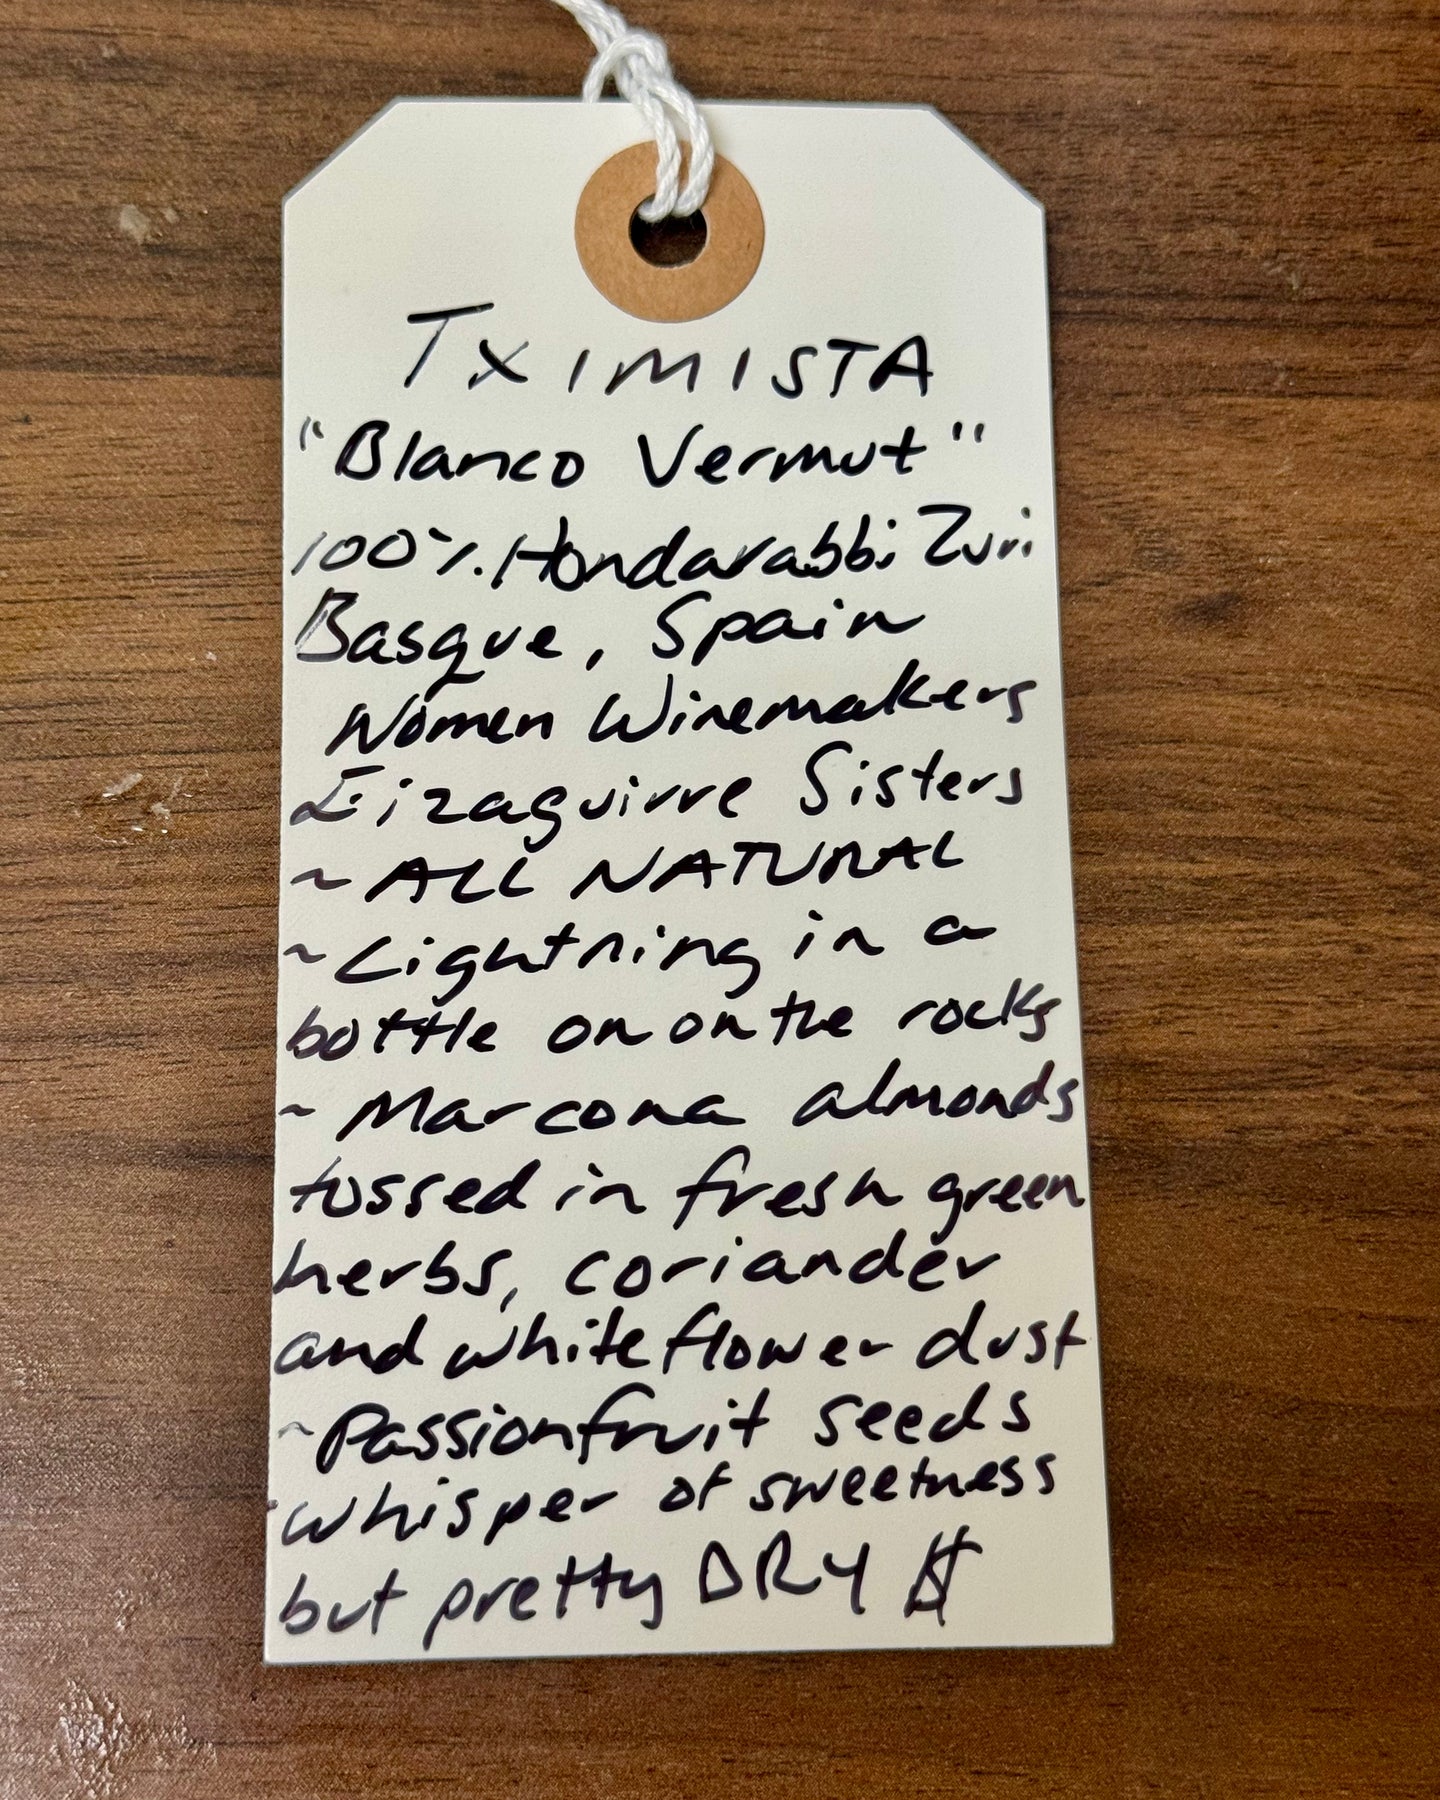 TXIMISTA
"Blanco Vermut"
100% Hondarabbi Zuri
Basque, Spain
Women Winemakers
Eizaguirre Sisters
~ ALL NATURAL
~ Lightning in a
bottle on on the rocks
~ Marcona almonds
tossed in fresh green
herbs, coriander
and white flower dust
~ Passionfruit seeds
whisper of sweetness
but pretty DRY